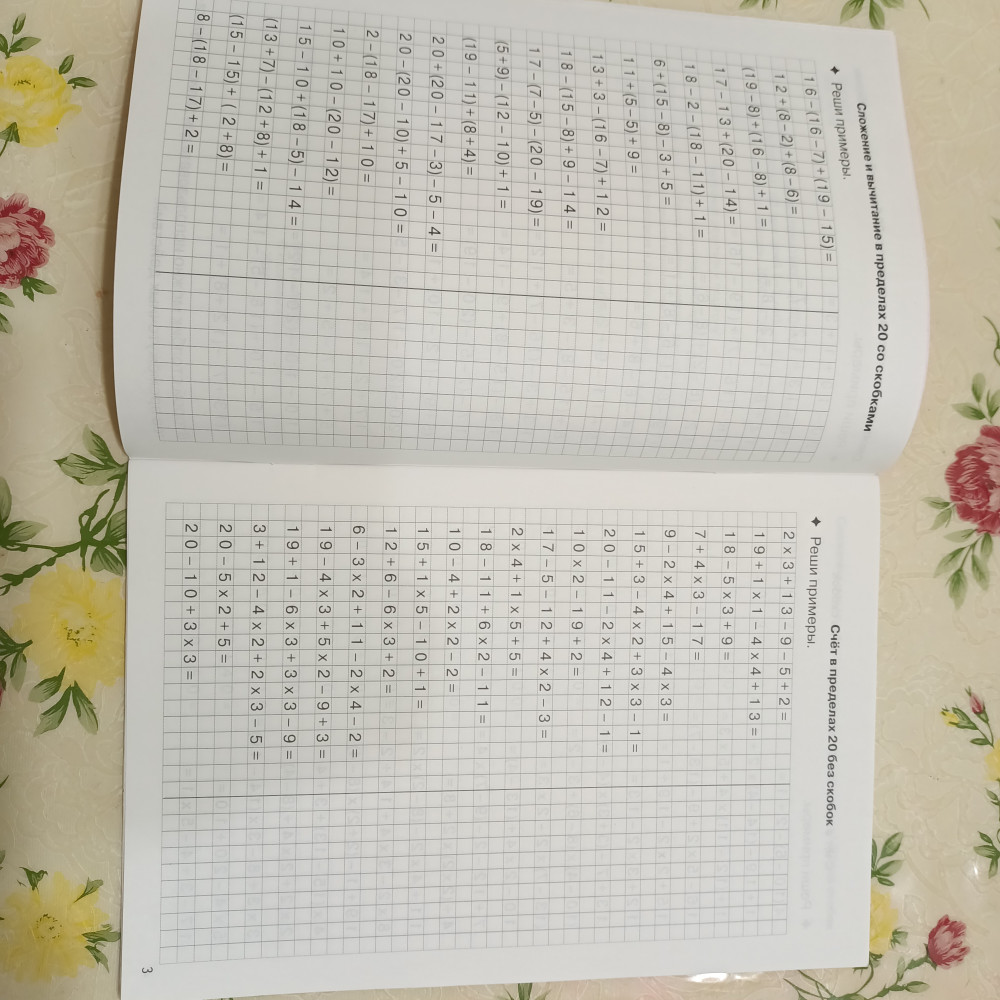 Сложение и вычитание в пределах 20 со скобками
✦ Реши примеры.
16–(16–7)+(19–15)=
12+(8–2)+(8–6)=
(19–8)+(16–8)+1=
17–13+(20–14)=
18–2–(18–11)+1=
6+(15–8)–3+5=
11+(5–5)+9=
13+3–(16–7)+12=
18–(15–8)+9–14=
17–(7–5)–(20–19)=
(5+9)–(12–10)+1=
(19–11)+(8+4)=
20+(20–17–3)–5–4=
20–(20–10)+5–10=
2–(18–17)+10=
10+10–(20–12)=
15–10+(18–5)–14=
(13+7)–(12+8)+1=
(15–15)+(2+8)=
8–(18–17)+2=
Счёт в пределах 20 без скобок
✦ Реши примеры.
2x3+13–9–5+2=
19+1x1–4x4+13=
18–5x3+9=
7+4x3–17=
9–2x4+15–4x3=
15+3–4x2+3x3–1=
20–11–2x4+12–1=
10x2–19+2=
17–5–12+4x2–3=
2x4+1x5+5=
18–11+6x2–11=
10–4+2x2–2=
15+1x5–10+1=
12+6–6x3+2=
6–3x2+11–2x4–2=
19–4x3+5x2–9+3=
19+1–6x3+3x3–9=
3+12–4x2+2x3–5=
20–5x2+5=
20–10+3x3=
3